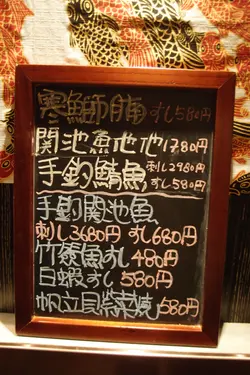 寒鰤腩 すし580円
関池魚池池 1780円
手釣鯖魚 刺し2980円
すし580円
手釣関池魚
刺し3680円 すし680円
竹筴魚すし480円
白蝦すし580円
帆立貝紫菜焼580円